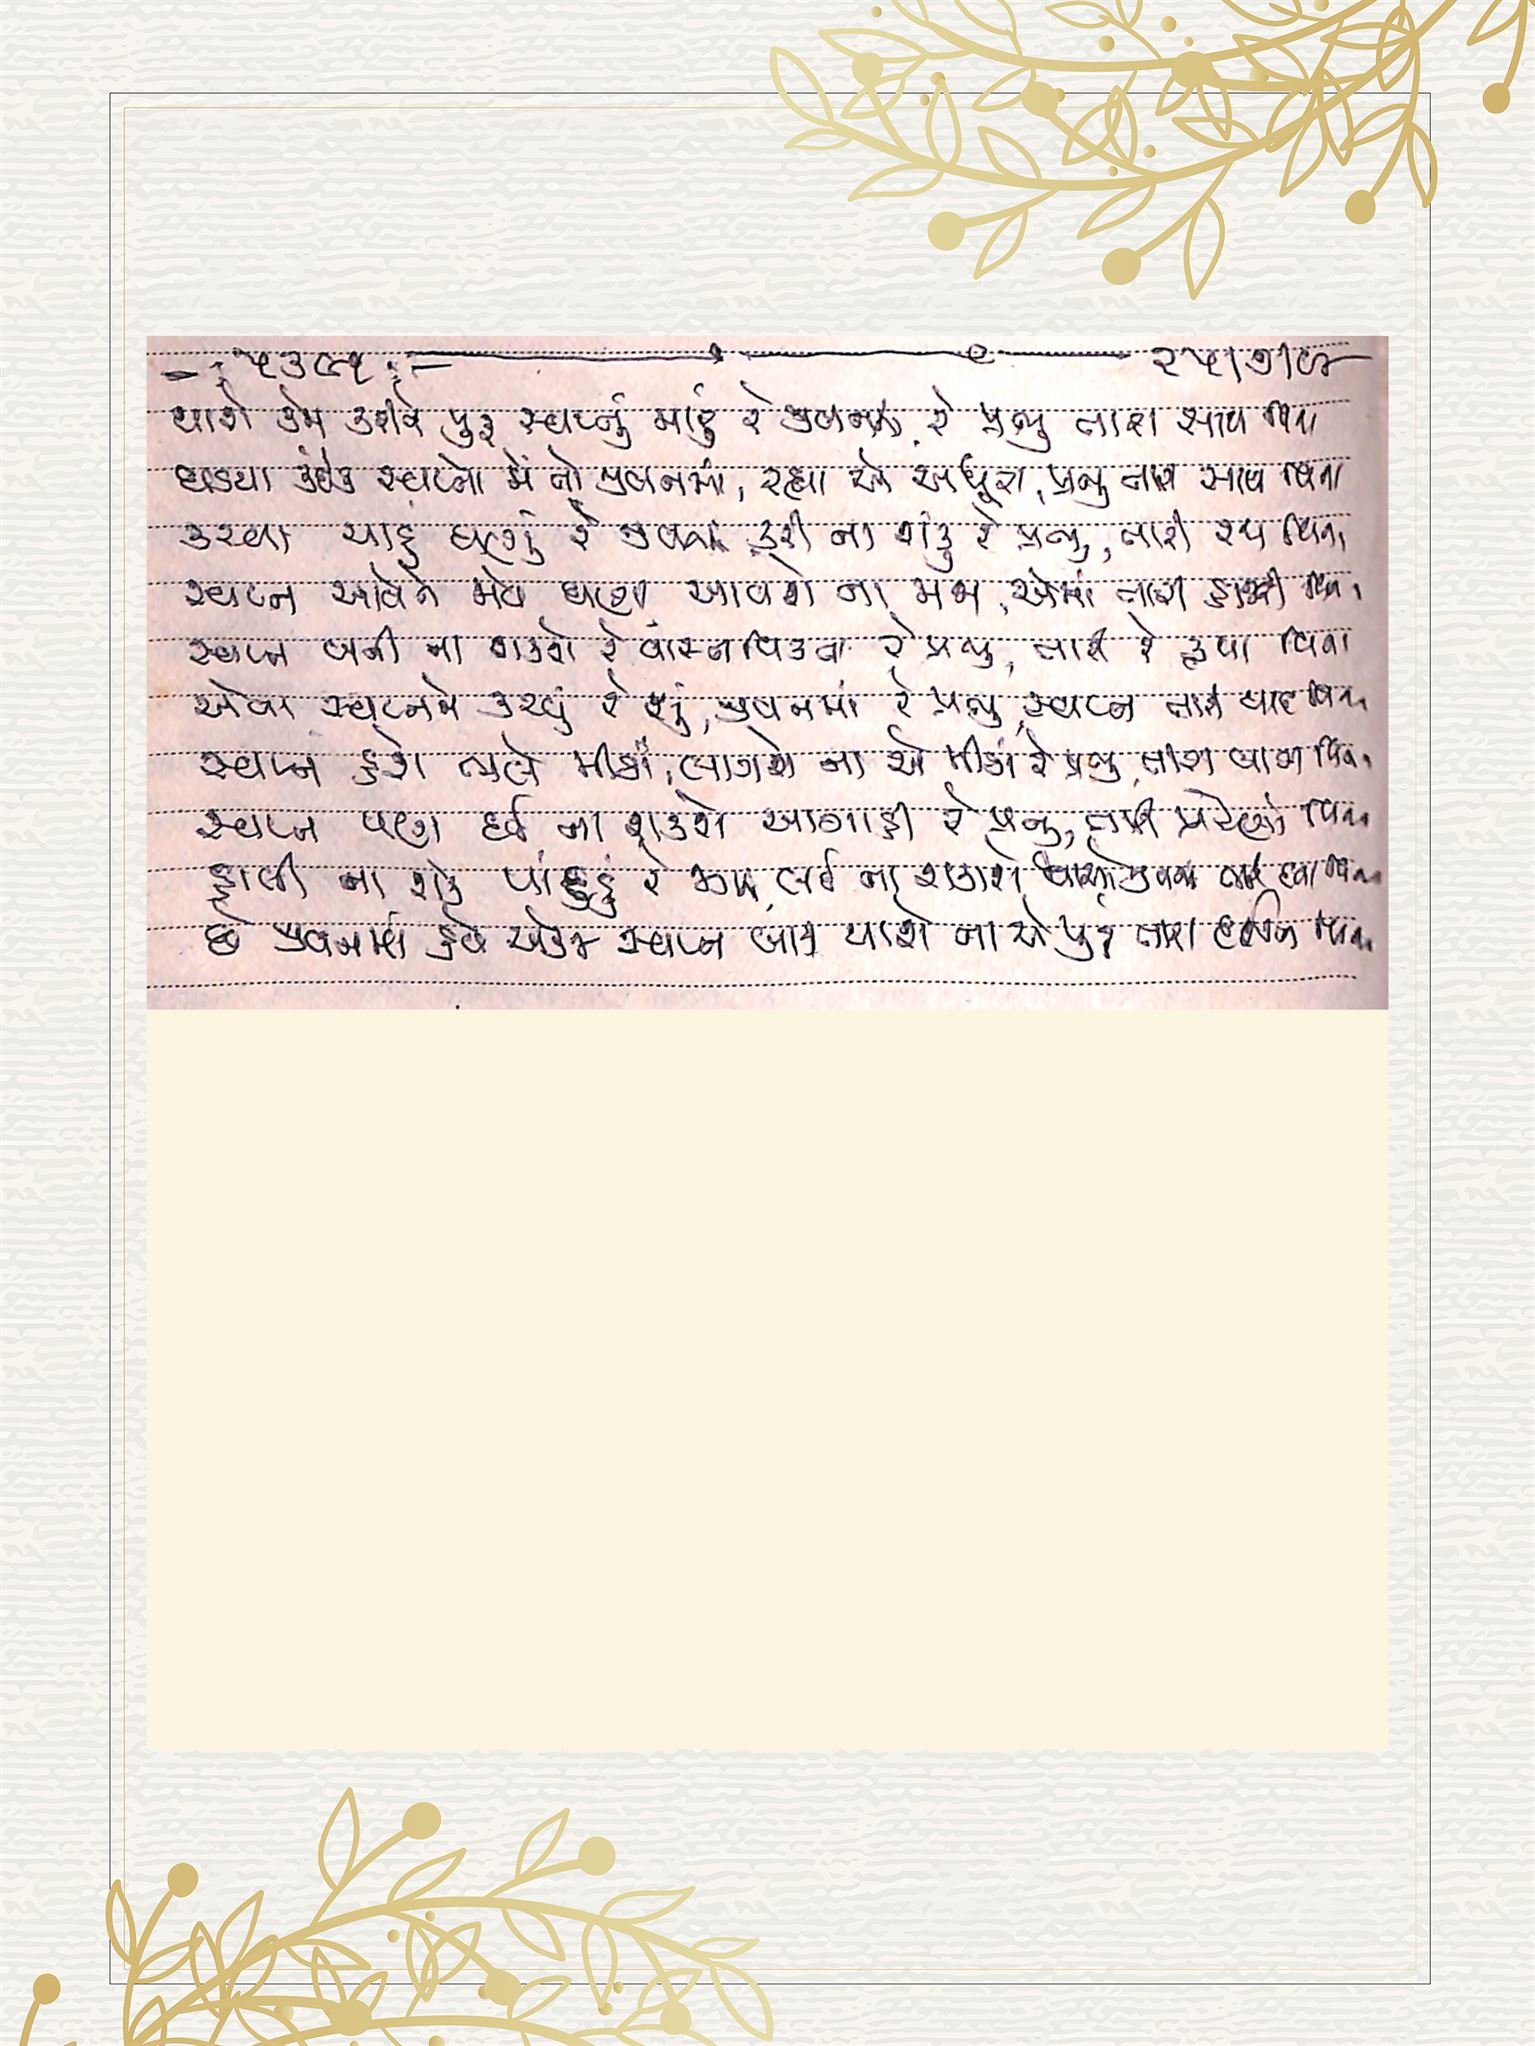 થાશે કેમ કરીને પુરૂ સ્વપ્નું મારું રે જીવનમાં, રે પ્રભુ તારા સાથ વિના
ઘડયા કંઈક સ્વપ્નો મેં તો જીવનમાં, રહ્યા એ અધૂરા, પ્રભુ તારા સાથ વિના
કરવા ચાહું ઘણું રે જીવનમાં કરી ના શકું રે પ્રભુ, તારી દયા વિના
સ્વપ્ન આવે ને મળે ઘણા આવશે ના મજા, એમાં તારી હાજરી વિના
સ્વપ્ન બની ના શકશે રે વાસ્તવિકતા રે પ્રભુ, તારી રે કૃપા વિના
એવા સ્વપ્નને કરવું રે શું, જીવનમાં રે પ્રભુ, સ્વપ્ન તારી યાદ વિના
સ્વપ્ન હશે ભલે મીઠાં, લાગશે ના એ મીઠાં રે પ્રભુ, તારા ભાવ વિના
સ્વપ્ન પણ દઈ ના શકશે આઝાદી રે પ્રભુ, તારી પ્રેરણા વિના
હાલી ના શકે પાંદડું રે ના શકાશે વિના
છે જીવનમાં હવે એકજ સ્વપ્ન થાશે ના એ પુરૂં તારા દર્શન વિના